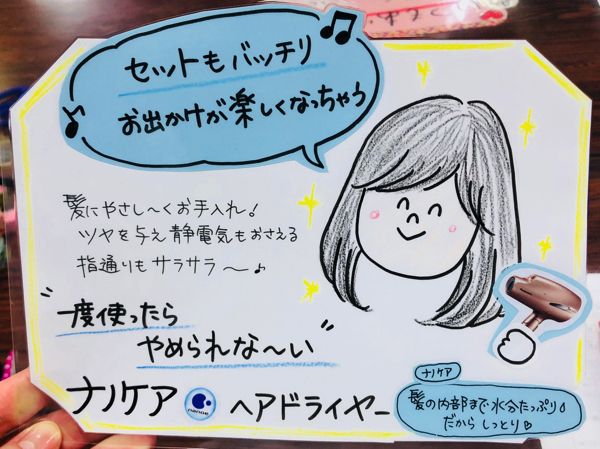 セットもバッチリ
お出かけが楽しくなっちゃう
髪にやさし〜くお手入れ!
ツヤを与え静電気もおさえる
指通りもサラサラ〜♪
"一度使ったら
やめられな〜い"
ナノケア nanoe ヘアドライヤー
ナノケア
髪の内部まで水分たっぷり
だから しっとり♡